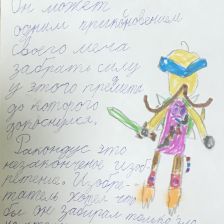 Он может
одним прикосновением
своего меча
забрать силу
у этого предмета
до которого
дотронулся.
это
незаконченое изоб-
ретение. Изобре-
татель хотел что
бы он забирал только